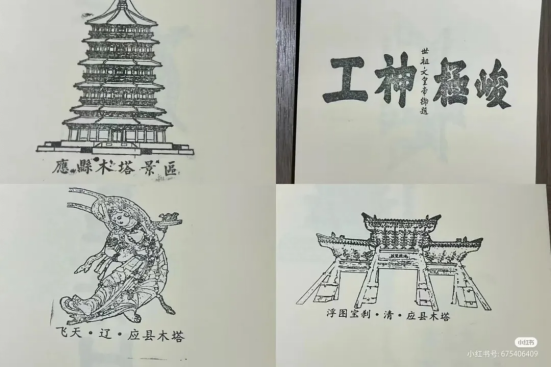 應縣木塔景區
世祖文皇帝御題
工神極峻
飞天·辽·应县木塔
浮图宝刹·清·应县木塔
小红书
小红书号: 675406409